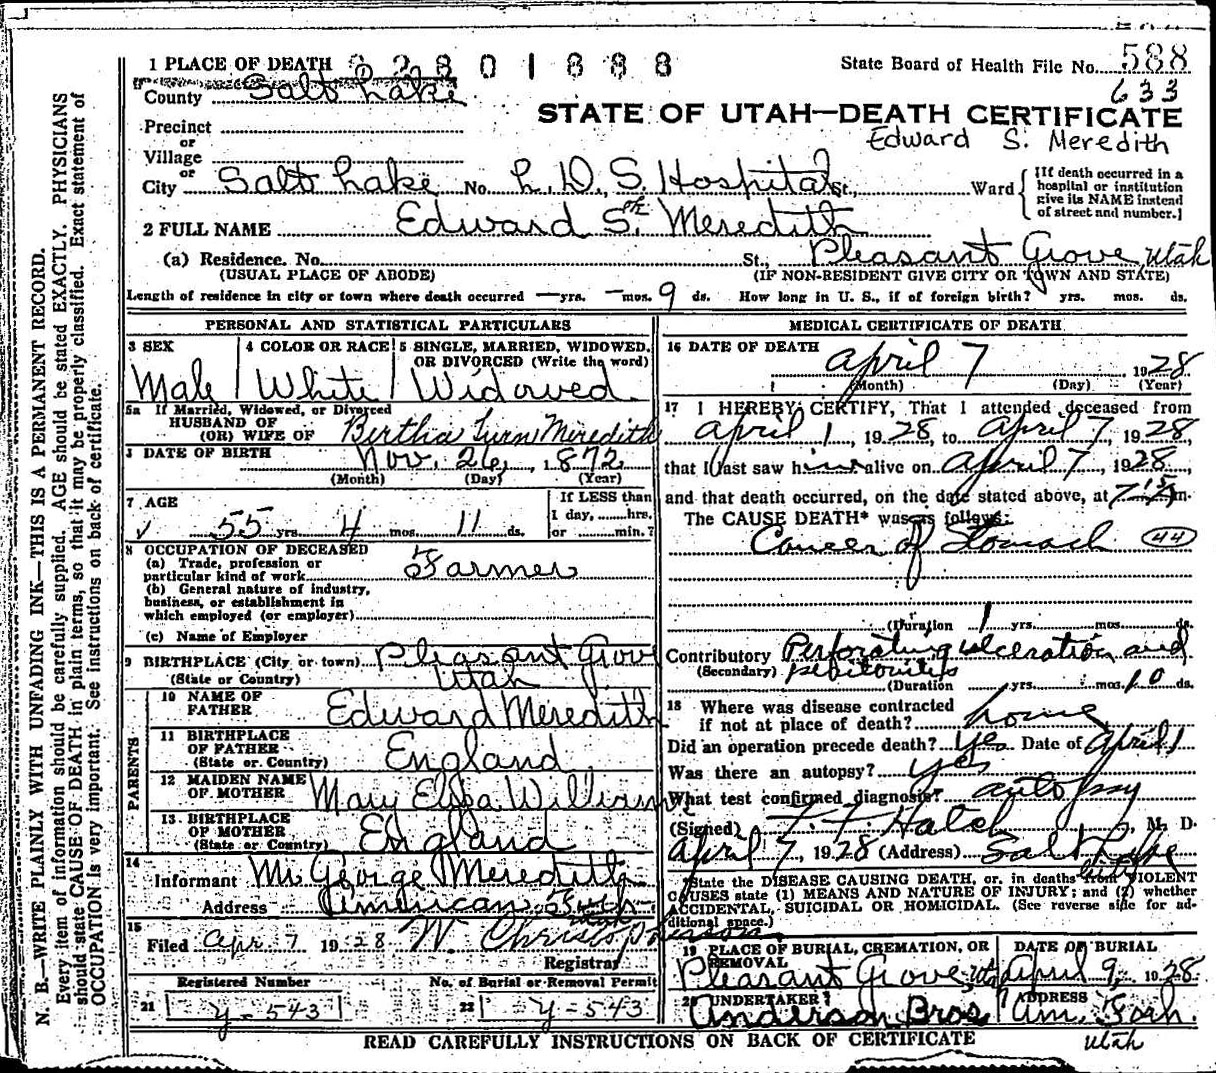 N. B.—WRITE PLAINLY WITH UNFADING INK—THIS IS A PERMANENT RECORD.
Every item of information should be carefully supplied. AGE should be stated EXACTLY. PHYSICIANS
should state CAUSE OF DEATH in plain terms, so that it may be properly classified. Exact statement of
OCCUPATION is very important. See instructions on back of certificate.
1 PLACE OF DEATH
State Board of Health File No. 588
633
County Salt Lake
STATE OF UTAH—DEATH CERTIFICATE
Edward S. Meredith
Precinct
or
Village
or
City Salt Lake No. L. D. S. Hospital St., Ward
[If death occurred in a
hospital or institution
give its NAME instead
of street and number.]
2 FULL NAME Edward S. Meredith
(a) Residence. No. St., Pleasant Grove, Utah
(USUAL PLACE OF ABODE) (IF NON-RESIDENT GIVE CITY OR TOWN AND STATE)
Length of residence in city or town where death occurred — yrs. — mos. 9 ds. How long in U. S., if of foreign birth? yrs. mos. ds.
PERSONAL AND STATISTICAL PARTICULARS
3 SEX
Male
4 COLOR OR RACE
White
5 SINGLE, MARRIED, WIDOWED,
OR DIVORCED (Write the word)
Widowed
5a If Married, Widowed, or Divorced
HUSBAND OF
(OR) WIFE OF Bertha Meredith
DATE OF BIRTH Nov. 26, 1872
(Month) (Day) (Year)
7 AGE
55 yrs. 4 mos. 11 ds.
If LESS than
1 day, ......hrs.
or ......min.?
8 OCCUPATION OF DECEASED
(a) Trade, profession or
particular kind of work Farmer
(b) General nature of industry,
business, or establishment in
which employed (or employer)
(c) Name of Employer
9 BIRTHPLACE (City or town) Pleasant Grove
(State or Country) Utah
PARENTS
10 NAME OF
FATHER Edward Meredith
11 BIRTHPLACE
OF FATHER England
(State or Country)
12 MAIDEN NAME
OF MOTHER Mary Eliza
13 BIRTHPLACE
OF MOTHER England
(State or Country)
14
Informant Mr George Meredith
Address American Fork
Utah
15
Filed Apr 7 1928
Registrar
Registered Number
21 Y-543
No. of Burial or Removal Permit
22 Y-543
MEDICAL CERTIFICATE OF DEATH
16 DATE OF DEATH April 7 1928
(Month) (Day) (Year)
17 I HEREBY CERTIFY, That I attended deceased from
April 1, 1928, to April 7, 1928,
that I last saw him alive on April 7, 1928,
and that death occurred, on the date stated above, at 7 15 m.
The CAUSE DEATH* was as follows:
Cancer of Stomach 44
(Duration 1 yrs. mos. ds.
Contributory Perforating ulceration and
(Secondary) peritonitis
(Duration yrs. mos. 10 ds.
18 Where was disease contracted
if not at place of death? home
Did an operation precede death? Yes Date of April 1
Was there an autopsy? yes
What test confirmed diagnosis? autopsy
(Signed) Hatch, M. D.
April 7, 1928 (Address) Salt Lake
*State the DISEASE CAUSING DEATH, or, in deaths from VIOLENT
CAUSES state (1) MEANS AND NATURE OF INJURY; and (2) whether
ACCIDENTAL, SUICIDAL OR HOMICIDAL. (See reverse side for ad-
ditional space.)
19 PLACE OF BURIAL, CREMATION, OR
REMOVAL
Pleasant Grove, Ut
DATE OF BURIAL
April 9, 1928
20 UNDERTAKER
Anderson Bros
ADDRESS
Am. Fork.
Utah
READ CAREFULLY INSTRUCTIONS ON BACK OF CERTIFICATE